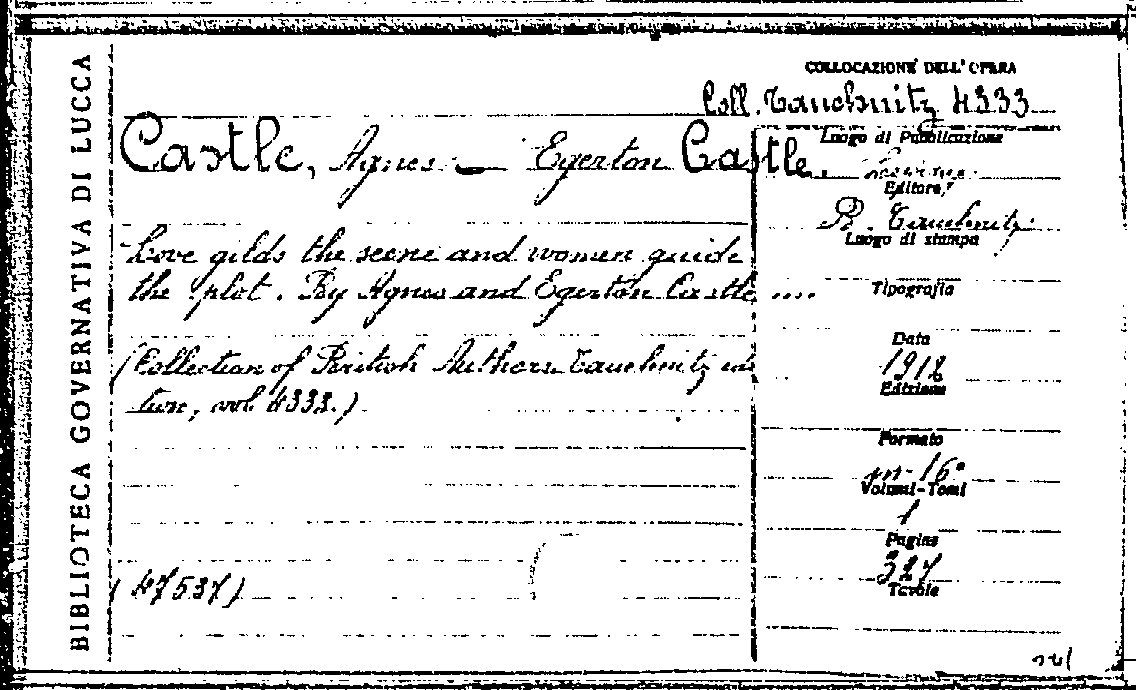 BIBLIOTECA GOVERNATIVA DI LUCCA
COLLOCAZIONE DELL'OPERA
Coll. Tauchnitz 4333
Castle, Agnes – Egerton Castle.
Luogo di Pubblicazione
Editore
B. Tauchnitz
Luogo di stampa
Love gilds the scene and women guide
the plot. By Agnes and Egerton Castle ....
Tipografia
(Collection of British Authors Tauchnitz edi
tion, vol 4333.)
Data
1912
Edizione
Formato
in-16°
Volumi-Tomi
1
Pagine
327
Tavole
(47537)